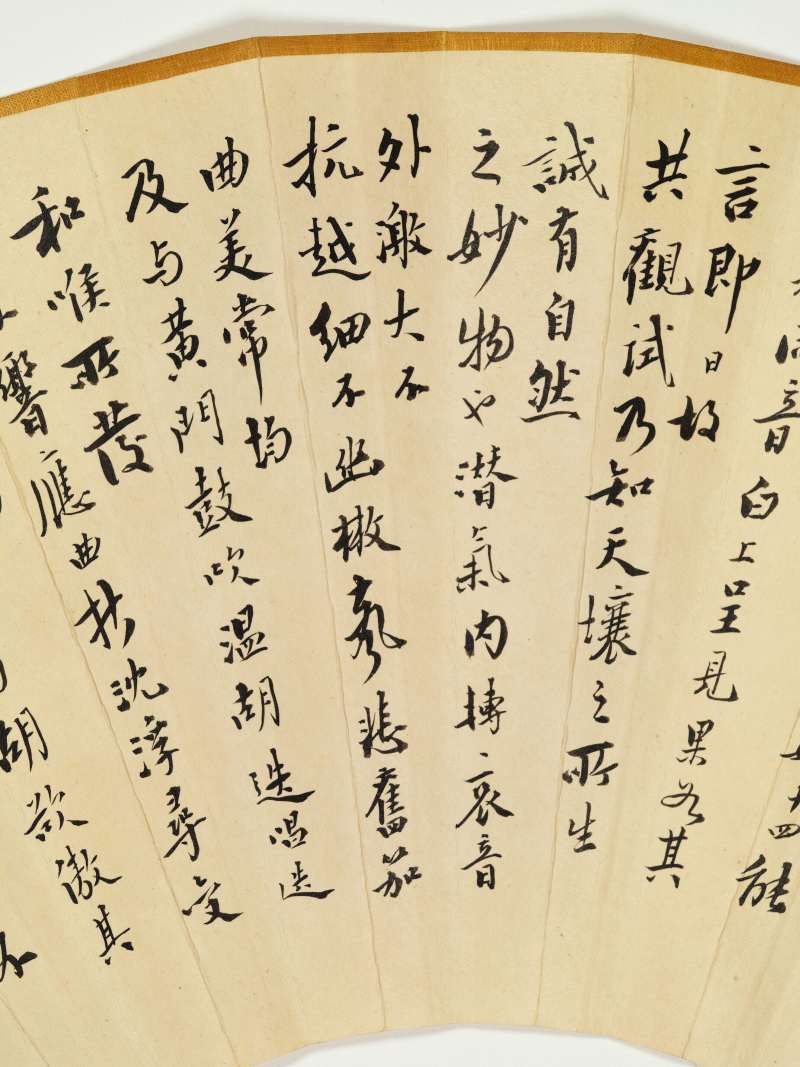 十四能
同音白上呈見果若其
言即日故
共觀試乃知天壤之所生
誠有自然
之妙物也潛氣內轉哀音
外激大不
抗越細不幽散聲悲舊笳
曲美常均
及与黃門鼓吹溫胡迭唱迭
和喉所發
不響應曲折沈浮尋變
胡欲傲其